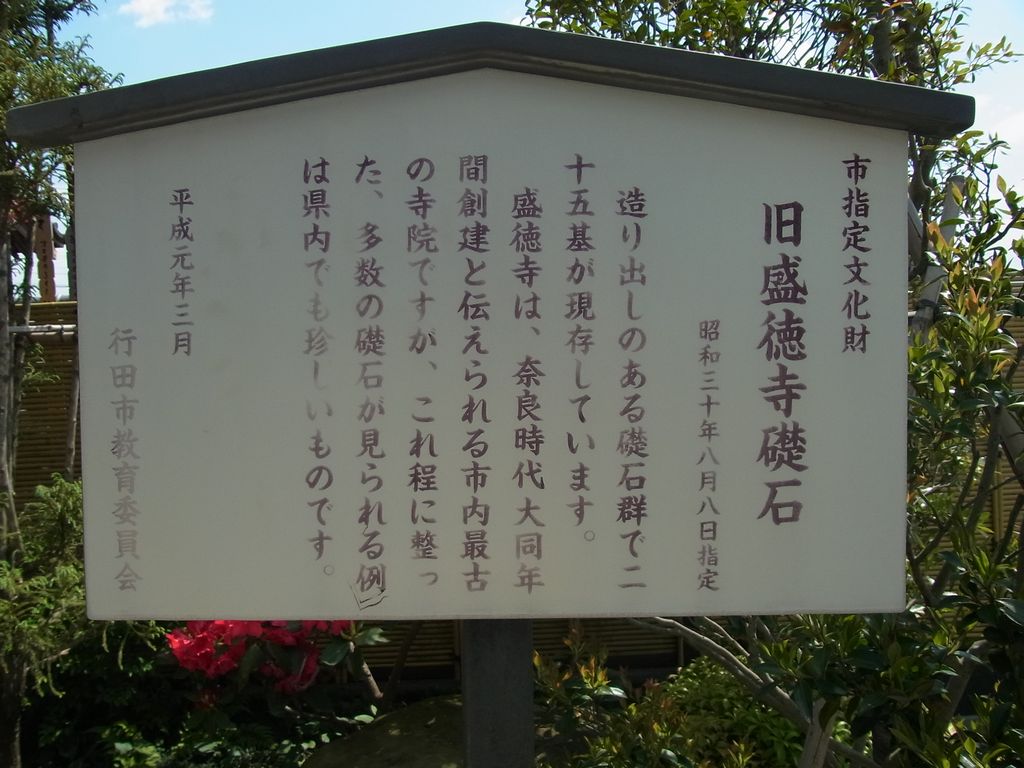 市指定文化財
旧盛徳寺礎石
昭和三十年八月八日指定
造り出しのある礎石群で二
十五基が現存しています。
盛徳寺は、奈良時代大同年
間創建と伝えられる市内最古
の寺院ですが、これ程に整っ
た、多数の礎石が見られる例
は県内でも珍しいものです。
平成元年三月
行田市教育委員会